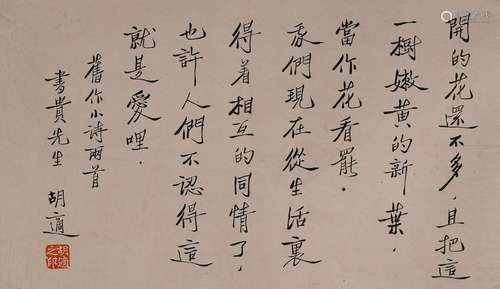 開的花還不多．且把這
一樹嫩黃的新葉．
當作花看罷．
我們現在從生活裏
得着相互的同情了．
也許人們不認得這
就是愛哩．
舊作小詩兩首
書貴先生 胡適
胡適之印